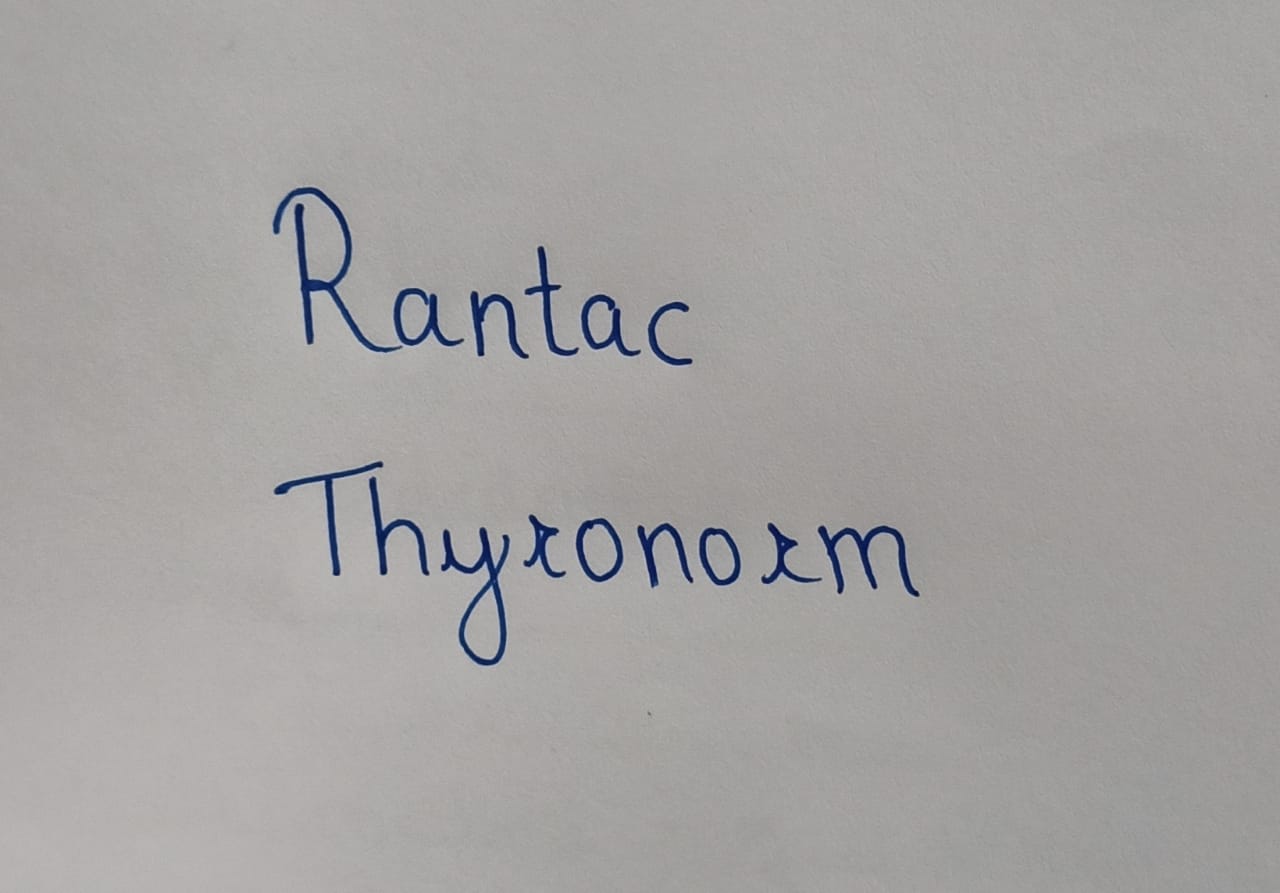 Rantac
Thyronorm